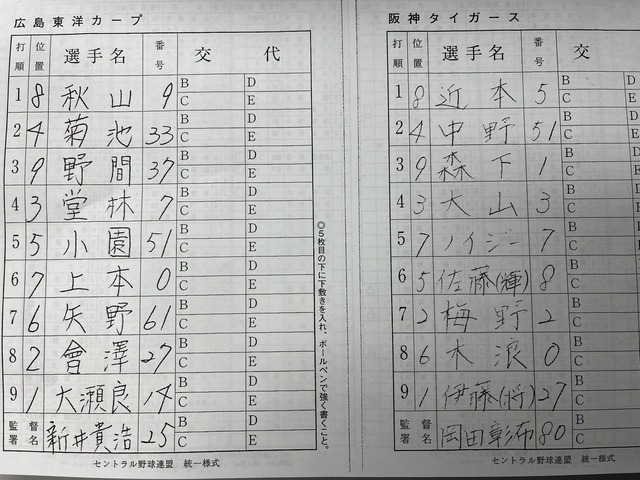 広島東洋カープ
打順 位置 選手名 番号 交代
1 8 秋山 9 B C D E
2 4 菊池 33 B C D E
3 9 野間 37 B C D E
4 3 堂林 7 B C D E
5 5 小園 51 B C D E
6 7 上本 0 B C D E
7 6 矢野 61 B C D E
8 2 會澤 27 B C D E
9 1 大瀬良 14 B C D E
監督署名 新井貴浩 25 B C D E
セントラル野球連盟 統一様式
◎5枚目の下に下敷きを入れ、ボールペンで強く書くこと。
阪神タイガース
打順 位置 選手名 番号 交
1 8 近本 5 B C D E
2 4 中野 51 B C D E
3 9 森下 1 B C D E
4 3 大山 3 B C D E
5 7 ノイジー 7 B C D E
6 5 佐藤(輝) 8 B C D E
7 2 梅野 2 B C D E
8 6 木浪 0 B C D E
9 1 伊藤(将) 27 B C D E
監督署名 岡田彰布 80 B C
セントラル野球連盟 統一様式